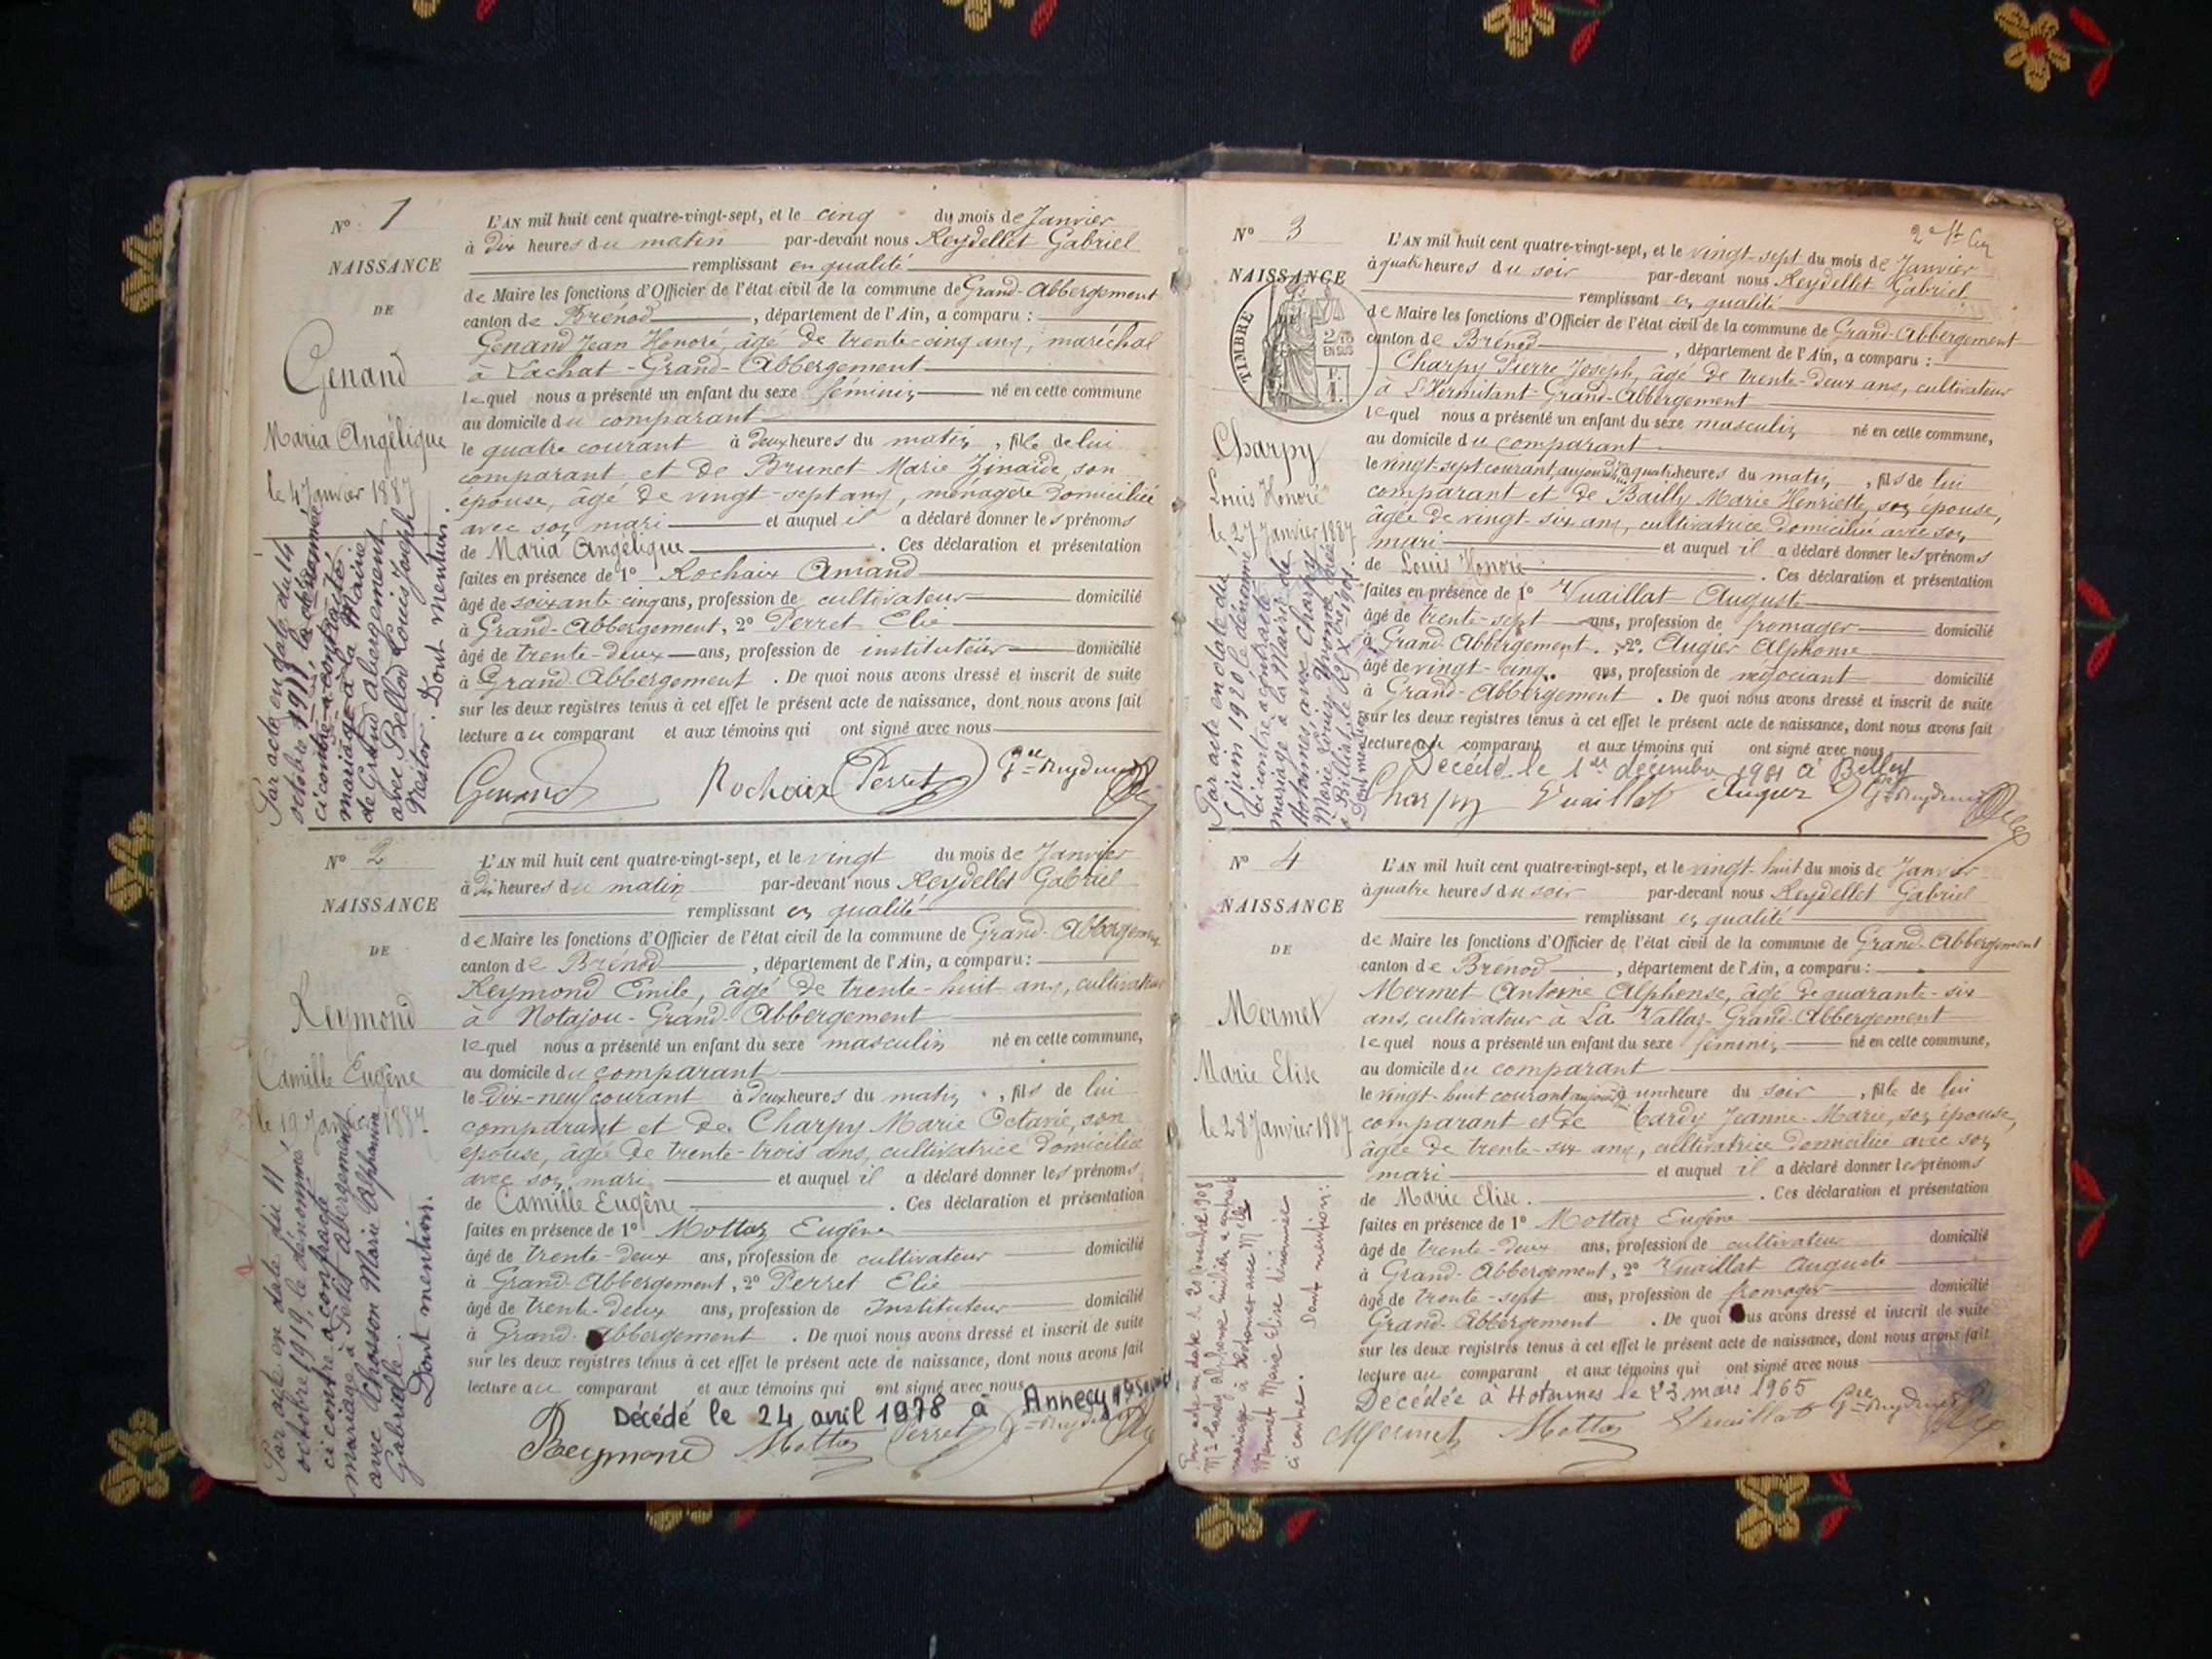 N° 1
NAISSANCE
DE
Genand
Maria Angélique
le 4 Janvier 1887
Par acte en date du 14
octobre 1911, la dénommée
ci contre a contracté
mariage à la Mairie
de Grand abergement
avec Bellod Louis Joseph
Nestor. Dont mention.
L'AN mil huit cent quatre-vingt-sept, et le cinq du mois de Janvier
à dix heures du matin par-devant nous Reydellet Gabriel
remplissant en qualité
de Maire les fonctions d'Officier de l'état civil de la commune de Grand-Abbergement
canton de Brenod, département de l'Ain, a comparu :
Genand Jean Honoré, âgé de trente-cinq ans, maréchal
à Lachat-Grand-Abbergement
lequel nous a présenté un enfant du sexe féminin né en cette commune
au domicile du comparant
le quatre courant à deux heures du matin, fille de lui
comparant et de Brunet Marie Zinaïde, son
épouse, âgé de vingt-sept ans, ménagère domiciliée
avec son mari et auquel il a déclaré donner les prénoms
de Maria Angélique. Ces déclaration et présentation
faites en présence de 1° Rochaix Amand
âgé de soixante cinq ans, profession de cultivateur domicilié
à Grand-Abbergement, 2° Perret Elie
âgé de trente-deux ans, profession de instituteur domicilié
à Grand-Abbergement. De quoi nous avons dressé et inscrit de suite
sur les deux registres tenus à cet effet le présent acte de naissance, dont nous avons fait
lecture au comparant et aux témoins qui ont signé avec nous
Genand Rochaix Perret
N° 2
NAISSANCE
DE
Reymond
Camille Eugène
le 19 Janvier 1887
Par acte en date du 11
octobre 1919, le dénommé
ci contre a contracté
mariage à Petit abergement
avec Chosson Marie Alphonsine
Gabrielle.
Dont mention.
L'AN mil huit cent quatre-vingt-sept, et le vingt du mois de Janvier
à dix heures du matin par-devant nous Reydellet Gabriel
remplissant en qualité
de Maire les fonctions d'Officier de l'état civil de la commune de Grand-Abbergement
canton de Brénod, département de l'Ain, a comparu :
Reymond Emile, âgé de trente-huit ans, cultivateur
à Notajou-Grand-Abbergement
lequel nous a présenté un enfant du sexe masculin né en cette commune,
au domicile du comparant
le dix-neuf courant à deux heures du matin, fils de lui
comparant et de Charpy Marie Octavie, son
épouse, âgée de trente-trois ans, cultivatrice domiciliée
avec son mari et auquel il a déclaré donner les prénoms
de Camille Eugène. Ces déclaration et présentation
faites en présence de 1° Mottaz Eugène
âgé de trente-deux ans, profession de cultivateur domicilié
à Grand-Abbergement, 2° Perret Elie
âgé de trente-deux ans, profession de Instituteur domicilié
à Grand-Abbergement. De quoi nous avons dressé et inscrit de suite
sur les deux registres tenus à cet effet le présent acte de naissance, dont nous avons fait
lecture au comparant et aux témoins qui ont signé avec nous
Décédé le 24 avril 1978 à Annecy
Reymond Mottaz Perret
N° 3
NAISSANCE
TIMBRE
2/10
EN SUS
Charpy
Louis Honoré
le 27 Janvier 1887
Par acte en date du
5 juin 1920 le dénommé
ci contre a contracté
mariage à la Mairie de
Hotonnes avec Charpy
Marie Louise Yvonne née
à Brillat le 25 Xbre 1901.
Dont mention
L'AN mil huit cent quatre-vingt-sept, et le vingt-sept du mois de Janvier
à quatre heures du soir par-devant nous Reydellet Gabriel
remplissant en qualité
de Maire les fonctions d'Officier de l'état civil de la commune de Grand-Abbergement
canton de Brénod, département de l'Ain, a comparu :
Charpy Pierre Joseph, âgé de trente-deux ans, cultivateur
à L'Hermitant-Grand-Abbergement
lequel nous a présenté un enfant du sexe masculin né en cette commune,
au domicile du comparant
le vingt-sept courant, aujourd'hui à quatre heures du matin, fils de lui
comparant et de Bailly Marie Henriette, son épouse,
âgée de vingt-six ans, cultivatrice domiciliée avec son
mari et auquel il a déclaré donner les prénoms
de Louis Honoré. Ces déclaration et présentation
faites en présence de 1° Vuaillat Auguste
âgé de trente-sept ans, profession de fromager domicilié
à Grand-Abbergement, 2° Augier Alphonse
âgé de vingt-cinq ans, profession de négociant domicilié
à Grand-Abbergement. De quoi nous avons dressé et inscrit de suite
sur les deux registres tenus à cet effet le présent acte de naissance, dont nous avons fait
lecture au comparant et aux témoins qui ont signé avec nous
Décédé le 1er décembre 1981 à Belley
Charpy Vuaillat Augier
N° 4
NAISSANCE
DE
Mermet
Marie Elise
le 28 Janvier 1887
Mermet Marie Elise dénommée
ci contre. Dont mention:
L'AN mil huit cent quatre-vingt-sept, et le vingt-huit du mois de Janvier
à quatre heures du soir par-devant nous Reydellet Gabriel
remplissant en qualité
de Maire les fonctions d'Officier de l'état civil de la commune de Grand-Abbergement
canton de Brénod, département de l'Ain, a comparu :
Mermet Antoine Alphonse, âgé de quarante-six
ans, cultivateur à La Vallaz-Grand-Abbergement
lequel nous a présenté un enfant du sexe féminin né en cette commune,
au domicile du comparant
le vingt-huit courant aujourd'hui à une heure du soir, fille de lui
comparant et de Tardy Jeanne-Marie, son épouse,
âgée de trente-six ans, cultivatrice domiciliée avec son
mari et auquel il a déclaré donner les prénoms
de Marie Elise. Ces déclaration et présentation
faites en présence de 1° Mottaz Eugène
âgé de trente-deux ans, profession de cultivateur domicilié
à Grand-Abbergement, 2° Vuaillat Auguste
âgé de trente-sept ans, profession de fromager domicilié
Grand-Abbergement. De quoi nous avons dressé et inscrit de suite
sur les deux registres tenus à cet effet le présent acte de naissance, dont nous avons fait
lecture au comparant et aux témoins qui ont signé avec nous
Décédée à Hotonnes le 23 mars 1965
Mermet Mottaz Vuaillat